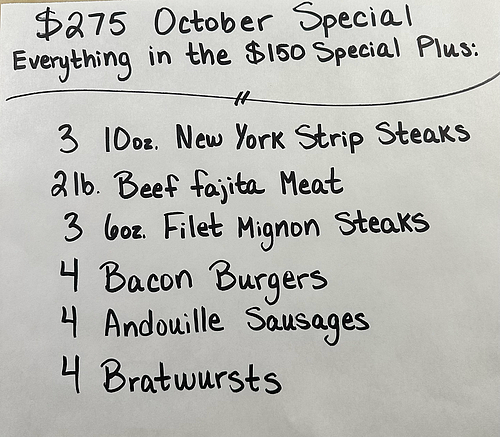 $275 October Special
Everything in the $150 Special Plus:
3 10oz. New York Strip Steaks
2lb. Beef fajita Meat
3 6oz. Filet Mignon Steaks
4 Bacon Burgers
4 Andouille Sausages
4 Bratwursts